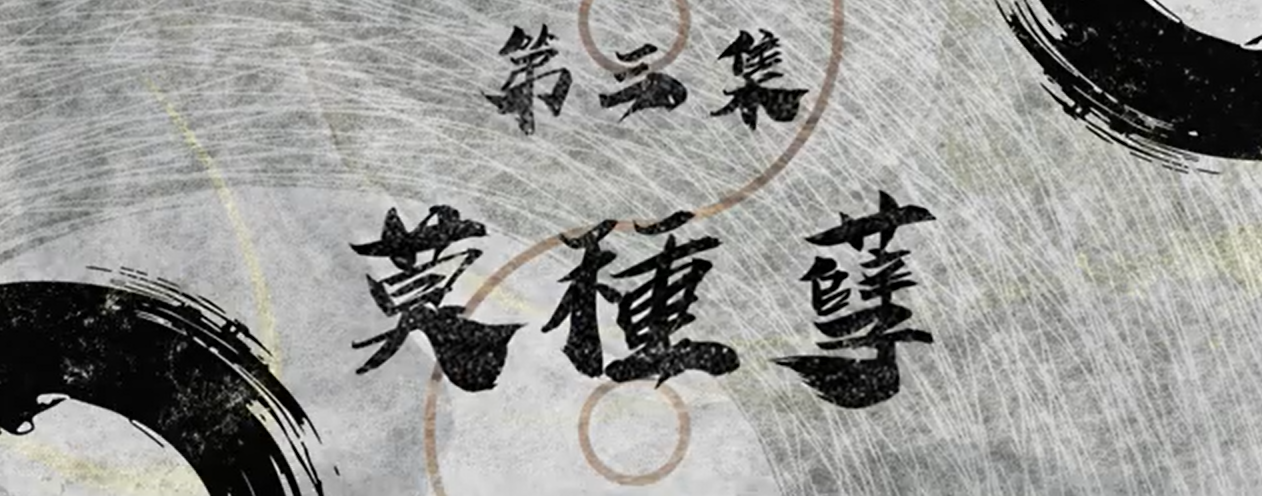 第三集
莫種孽